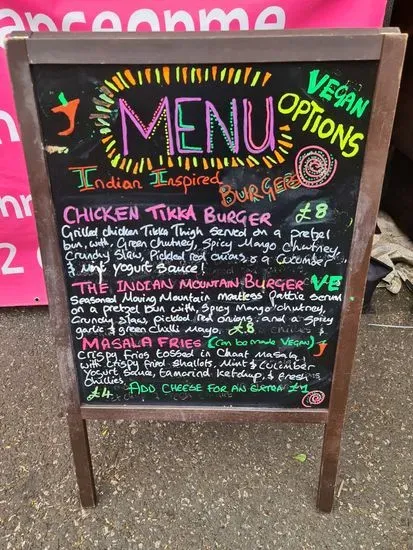 anceonme
MENU
VEGAN
OPTIONS
Indian Inspired
BURGERS
CHICKEN TIKKA BURGER £8
Grilled chicken Tikka Thigh served on a pretzel
bun, with, Green chutney, Spicy Mango chutney,
Crunchy Slaw, Pickled red onions & a Cucumber
& Mint Yogurt Sauce!
THE INDIAN MOUNTAIN BURGER VE
Seasoned Moving Mountain meatless Pattie served
on a pretzel bun with, Spicy Mango chutney,
Crunchy Slaw, pickled red onions, and a spicy
garlic & green chilli Mayo. £8
MASALA FRIES (can be made VEGAN)
Crispy Fries tossed in Chaat Masala
with crispy fried shallots, Mint & cucumber
Yogurt Sauce, tamarind ketchup, & fresh
chillies.
£4 ADD CHEESE FOR AN EXTRA £1